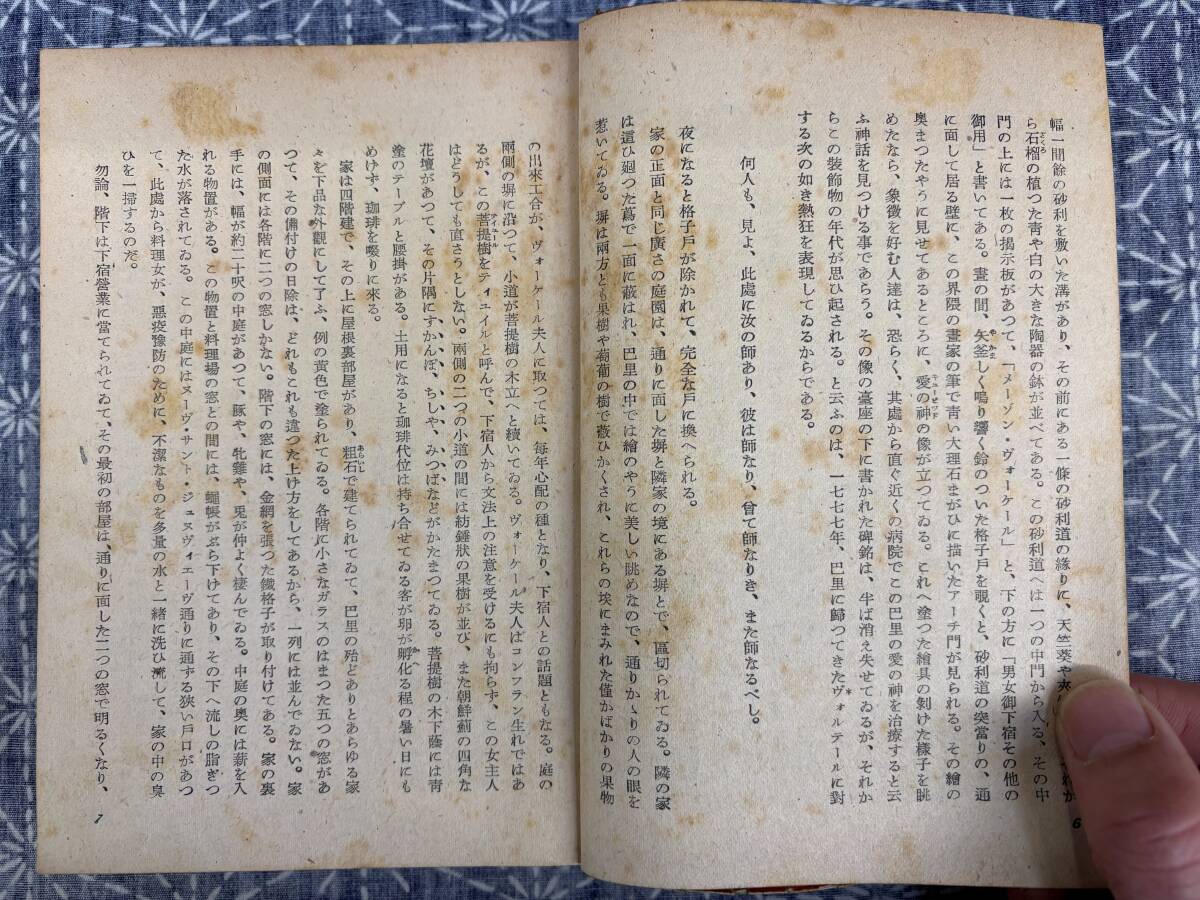 幅一間餘の砂利を敷いた溝があり、その前にある一條の砂利道の緣りに、天竺葵や夾
ら石榴の植つた靑や白の大きな陶器の鉢が並べてある。この砂利道へは一つの中門から入る、その中
門の上には一枚の揭示板があつて、「メーゾン・ヴォーケール」と、下の方に「男女御下宿その他の
御用」と書いてある。晝の間、矢釜しく鳴り響く鈴のついた格子戶を覗くと、砂利道の突當りの、通
に面して居る壁に、この界隈の畫家の筆で靑い大理石まがひに描いたアーチ門が見られる。その繪の
奧まつたやうに見せてあるところに、愛の神の像が立つてゐる。これへ塗つた繪具の剝けた樣子を眺
めたなら、象徵を好む人達は、恐らく、其處から直ぐ近くの病院でこの巴里の愛の神を治療すると云
ふ神話を見つける事であらう。その像の臺座の下に書かれた碑銘は、半ば消え失せてゐるが、それか
らこの裝飾物の年代が思ひ起される。と云ふのは、一七七七年、巴里に歸つてきたヴォルテールに對
する次の如き熱狂を表現してゐるからである。
何人も、見よ、此處に汝の師あり、彼は師なり、曾て師なりき、また師なるべし。
夜になると格子戶が除かれて、完全な戶に換へられる。
家の正面と同じ廣さの庭園は、通りに面した塀と隣家の境にある塀とで、區切られてゐる。隣の家
は這ひ廻つた蔦で一面に蔽はれ、巴里の中では繪のやうに美しい眺めなので、通りかゝりの人の眼を
惹いてゐる。塀は兩方とも果樹や葡萄の樹で蔽ひかくされ、これらの埃にまみれた僅かばかりの果物
6
の出來工合が、ヴォーケール夫人に取つては、每年心配の種となり、下宿人との話題ともなる。庭の
兩側の塀に沿つて、小道が菩提樹の木立へと續いてゐる。ヴォーケール夫人はコンフラン生れではあ
るが、この菩提樹をティエイルと呼んで、下宿人から文法上の注意を受けるにも拘らず、この女主人
はどうしても直さうとしない。兩側の二つの小道の間には紡錘狀の果樹が並び、また朝鮮薊の四角な
花壇があつて、その片隅にすかんぽ、ちしや、みつばなどがかたまつてゐる。菩提樹の木下蔭には靑
塗のテーブルと腰掛がある。土用になると珈琲代位は持ち合せてゐる客が卵が孵化る程の暑い日にも
めけず、珈琲を啜りに來る。
家は四階建で、その上に屋根裏部屋があり、粗石で建てられてゐて、巴里の殆どありとあらゆる家
々を下品な外觀にして了ふ、例の黃色で塗られてゐる。各階に小さなガラスのはまつた五つの窓があ
つて、その備付けの日除は、どれもこれも違つた上げ方をしてあるから、一列には並んでゐない。家
の側面には各階に二つの窓しかない。階下の窓には、金網を張つた鐵格子が取り付けてある。家の裏
手には、幅が約二十呎の中庭があつて、豚や、牝雞や、兎が仲よく棲んでゐる。中庭の奧には薪を入
れる物置がある。この物置と料理場の窓との間には、蠅帳がぶら下げてあり、その下へ流しの脂ぎつ
た水が落されてゐる。この中庭にはヌーヴ・サント・ジュヌヴィエーヴ通りに通ずる狹い戶口があつ
て、此處から料理女が、惡疫豫防のために、不潔なものを多量の水と一緖に洗ひ流して、家の中の臭
ひを一掃するのだ。
勿論、階下は下宿營業に當てられてゐて、その最初の部屋は、通りに面した二つの窓で明るくなり、
7